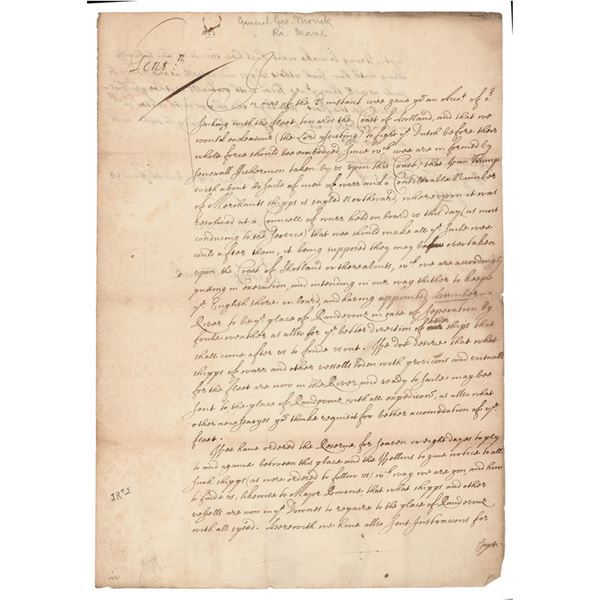 General Geo. Monck
Ri. Deane
Gent:n
In ours of the instant wee gave yo an Acco.t of
sailing with the fleet towards the Coast of Holland, and that we
would endeavour (the Lord assisting) to fight ye Dutch before their
whole force should bee embodyed since wch wee are informed by
severall fishermen taken by us upon this Coast, that Van Trump
with about 80 saile of men of warr and a Considerable Number
of Merchants shipps is sayled Northward, whereupon it was
resolved at a Councell of warr held on board us this day (as most
conducing to the service) that wee should make all ye saile wee
could after them, it being supposed they may bee overtaken
upon the Coast of Shotland or thereabouts, wch wee are accordingly
puting in execution, and intending in our way thither to keepe
ye English shore on board, and having appointed Humber
River to be ye place of Randevouz in case of seperation by
foule weather as allso for ye better direction of other ships that
shall come after us to finde us out. Wee doe desire that what
shipps of warr and other vessells loden with provicons and victualls
for the fleet are now in the River and ready to saile may bee
sent to the place of Randevouz with all expedicon, as allso what
other necessaryes yo thinke requisit for better accomodation of ye
fleet.
Wee have ordered the Reserve, for seaven or eight dayes to ply
to and againe between this place and the to give notice to all
such shipps (as were ordered to follow us) wch way we are gon, and how
to finde us, likewise to Major Bourne that what shipps and other
vessells are now in ye Downes to repaire to the place of Randevouz
with all speed. Herewith we have allso sent Instruccons for
Capt